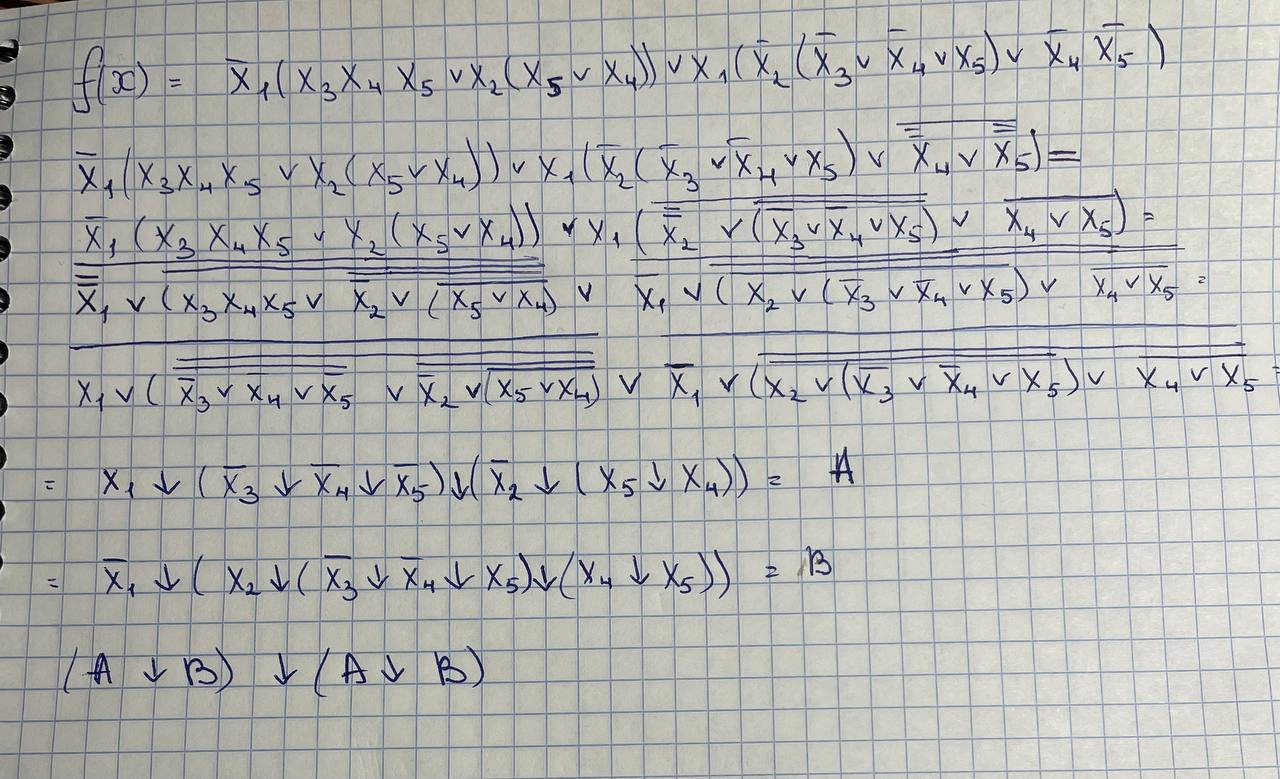 f(x) = x̄₁(x₃x₄x₅ ∨ x₂(x₅ ∨ x₄)) ∨ x₁(x̄₂(x̄₃ ∨ x̄₄ ∨ x₅) ∨ x̄₄ x̄₅)
x̄₁(x₃x₄x₅ ∨ x₂(x₅ ∨ x₄)) ∨ x₁(x̄₂(x̄₃ ∨ x̄₄ ∨ x₅) ∨ \overline{\overline{\overline{x}}₄ ∨ \overline{\overline{x}}₅}) =
x̄₁(x₃x₄x₅ ∨ x₂(x₅ ∨ x₄)) ∨ x₁(\overline{\overline{\overline{x}}₂ ∨ (\overline{x̄₃ ∨ x̄₄ ∨ x₅})} ∨ \overline{x₄ ∨ x₅}) =
\overline{\overline{\overline{x}}₁ ∨ (\overline{x₃x₄x₅ ∨ \overline{x̄₂ ∨ (\overline{x₅ ∨ x₄})}}} ∨ \overline{x̄₁ ∨ (\overline{\overline{x₂ ∨ (\overline{x̄₃ ∨ x̄₄ ∨ x₅})} ∨ \overline{x₄ ∨ x₅}}} =
\overline{x₁ ∨ (\overline{\overline{x̄₃ ∨ x̄₄ ∨ x̄₅} ∨ \overline{x̄₂ ∨ (\overline{x₅ ∨ x₄})}}} ∨ \overline{x̄₁ ∨ (\overline{\overline{x₂ ∨ (\overline{x̄₃ ∨ x̄₄ ∨ x₅})} ∨ \overline{x₄ ∨ x₅}}} =
= x₁ ↓ (x̄₃ ↓ x̄₄ ↓ x̄₅) ↓ (x̄₂ ↓ (x₅ ↓ x₄)) = A
= x̄₁ ↓ (x₂ ↓ (x̄₃ ↓ x̄₄ ↓ x₅) ↓ (x₄ ↓ x₅)) = B
(A ↓ B) ↓ (A ↓ B)